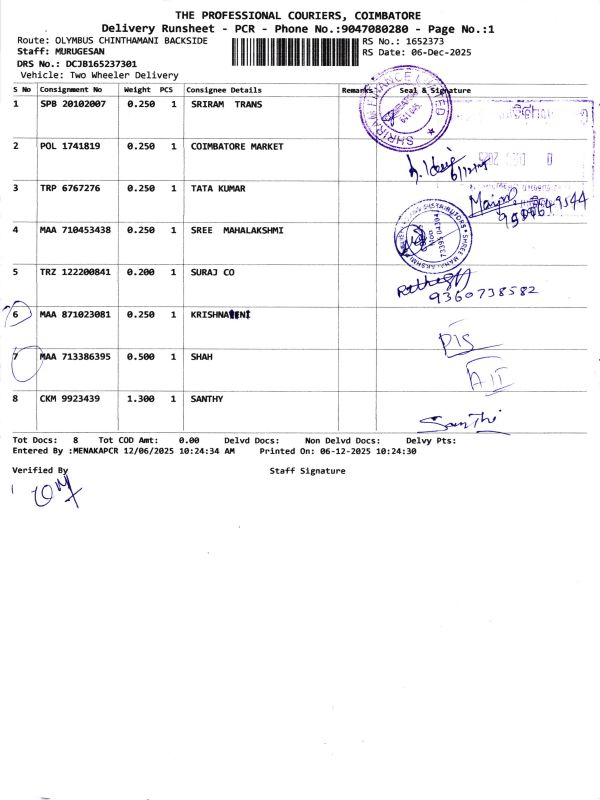 THE PROFESSIONAL COURIERS, COIMBATORE
Delivery Runsheet - PCR - Phone No.:9047080280 - Page No.:1
Route: OLYMBUS CHINTHAMANI BACKSIDE RS No.: 1652373
Staff: MURUGESAN RS Date: 06-Dec-2025
DRS No.: DCJB165237301
Vehicle: Two Wheeler Delivery
S No Consignment No Weight PCS Consignee Details Remarks Seal & Signature
1 SPB 20102007 0.250 1 SRIRAM TRANS
SHRIRAM FINANCE LIMITED
2 POL 1741819 0.250 1 COIMBATORE MARKET
6/12/25
3 TRP 6767276 0.250 1 TATA KUMAR
4 MAA 710453438 0.250 1 SREE MAHALAKSHMI
5 TRZ 122200841 0.200 1 SURAJ CO
9360738582
6 MAA 871023081 0.250 1 KRISHNAVENI
DIS
7 MAA 713386395 0.500 1 SHAH
AIT
8 CKM 9923439 1.300 1 SANTHY
Santhi
Tot Docs: 8 Tot COD Amt: 0.00 Delvd Docs: Non Delvd Docs: Delvy Pts:
Entered By :MENAKAPCR 12/06/2025 10:24:34 AM Printed On: 06-12-2025 10:24:30
Verified By Staff Signature